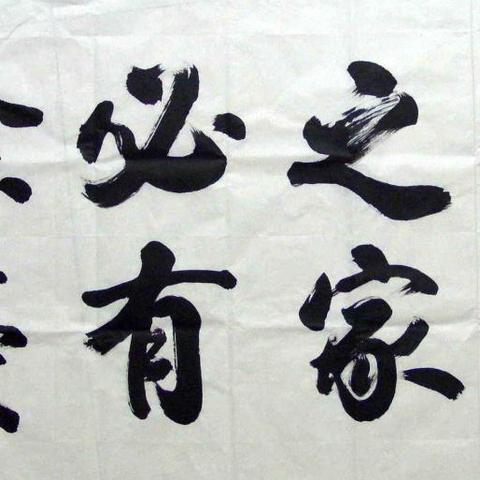 之家
必有